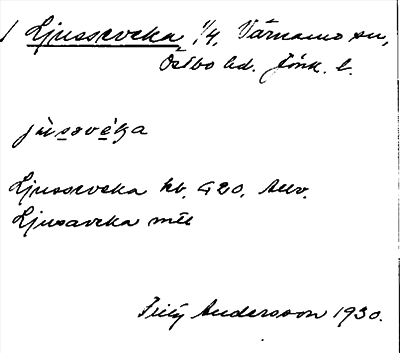 1 Ljusseveka, 1/4, Värnamo sn,
Östbo hd. Jönk. l.
jùsovéka
Ljusseveka kb. 420, Auv.
Ljusaveka mtl
Fritz Andersson 1930.